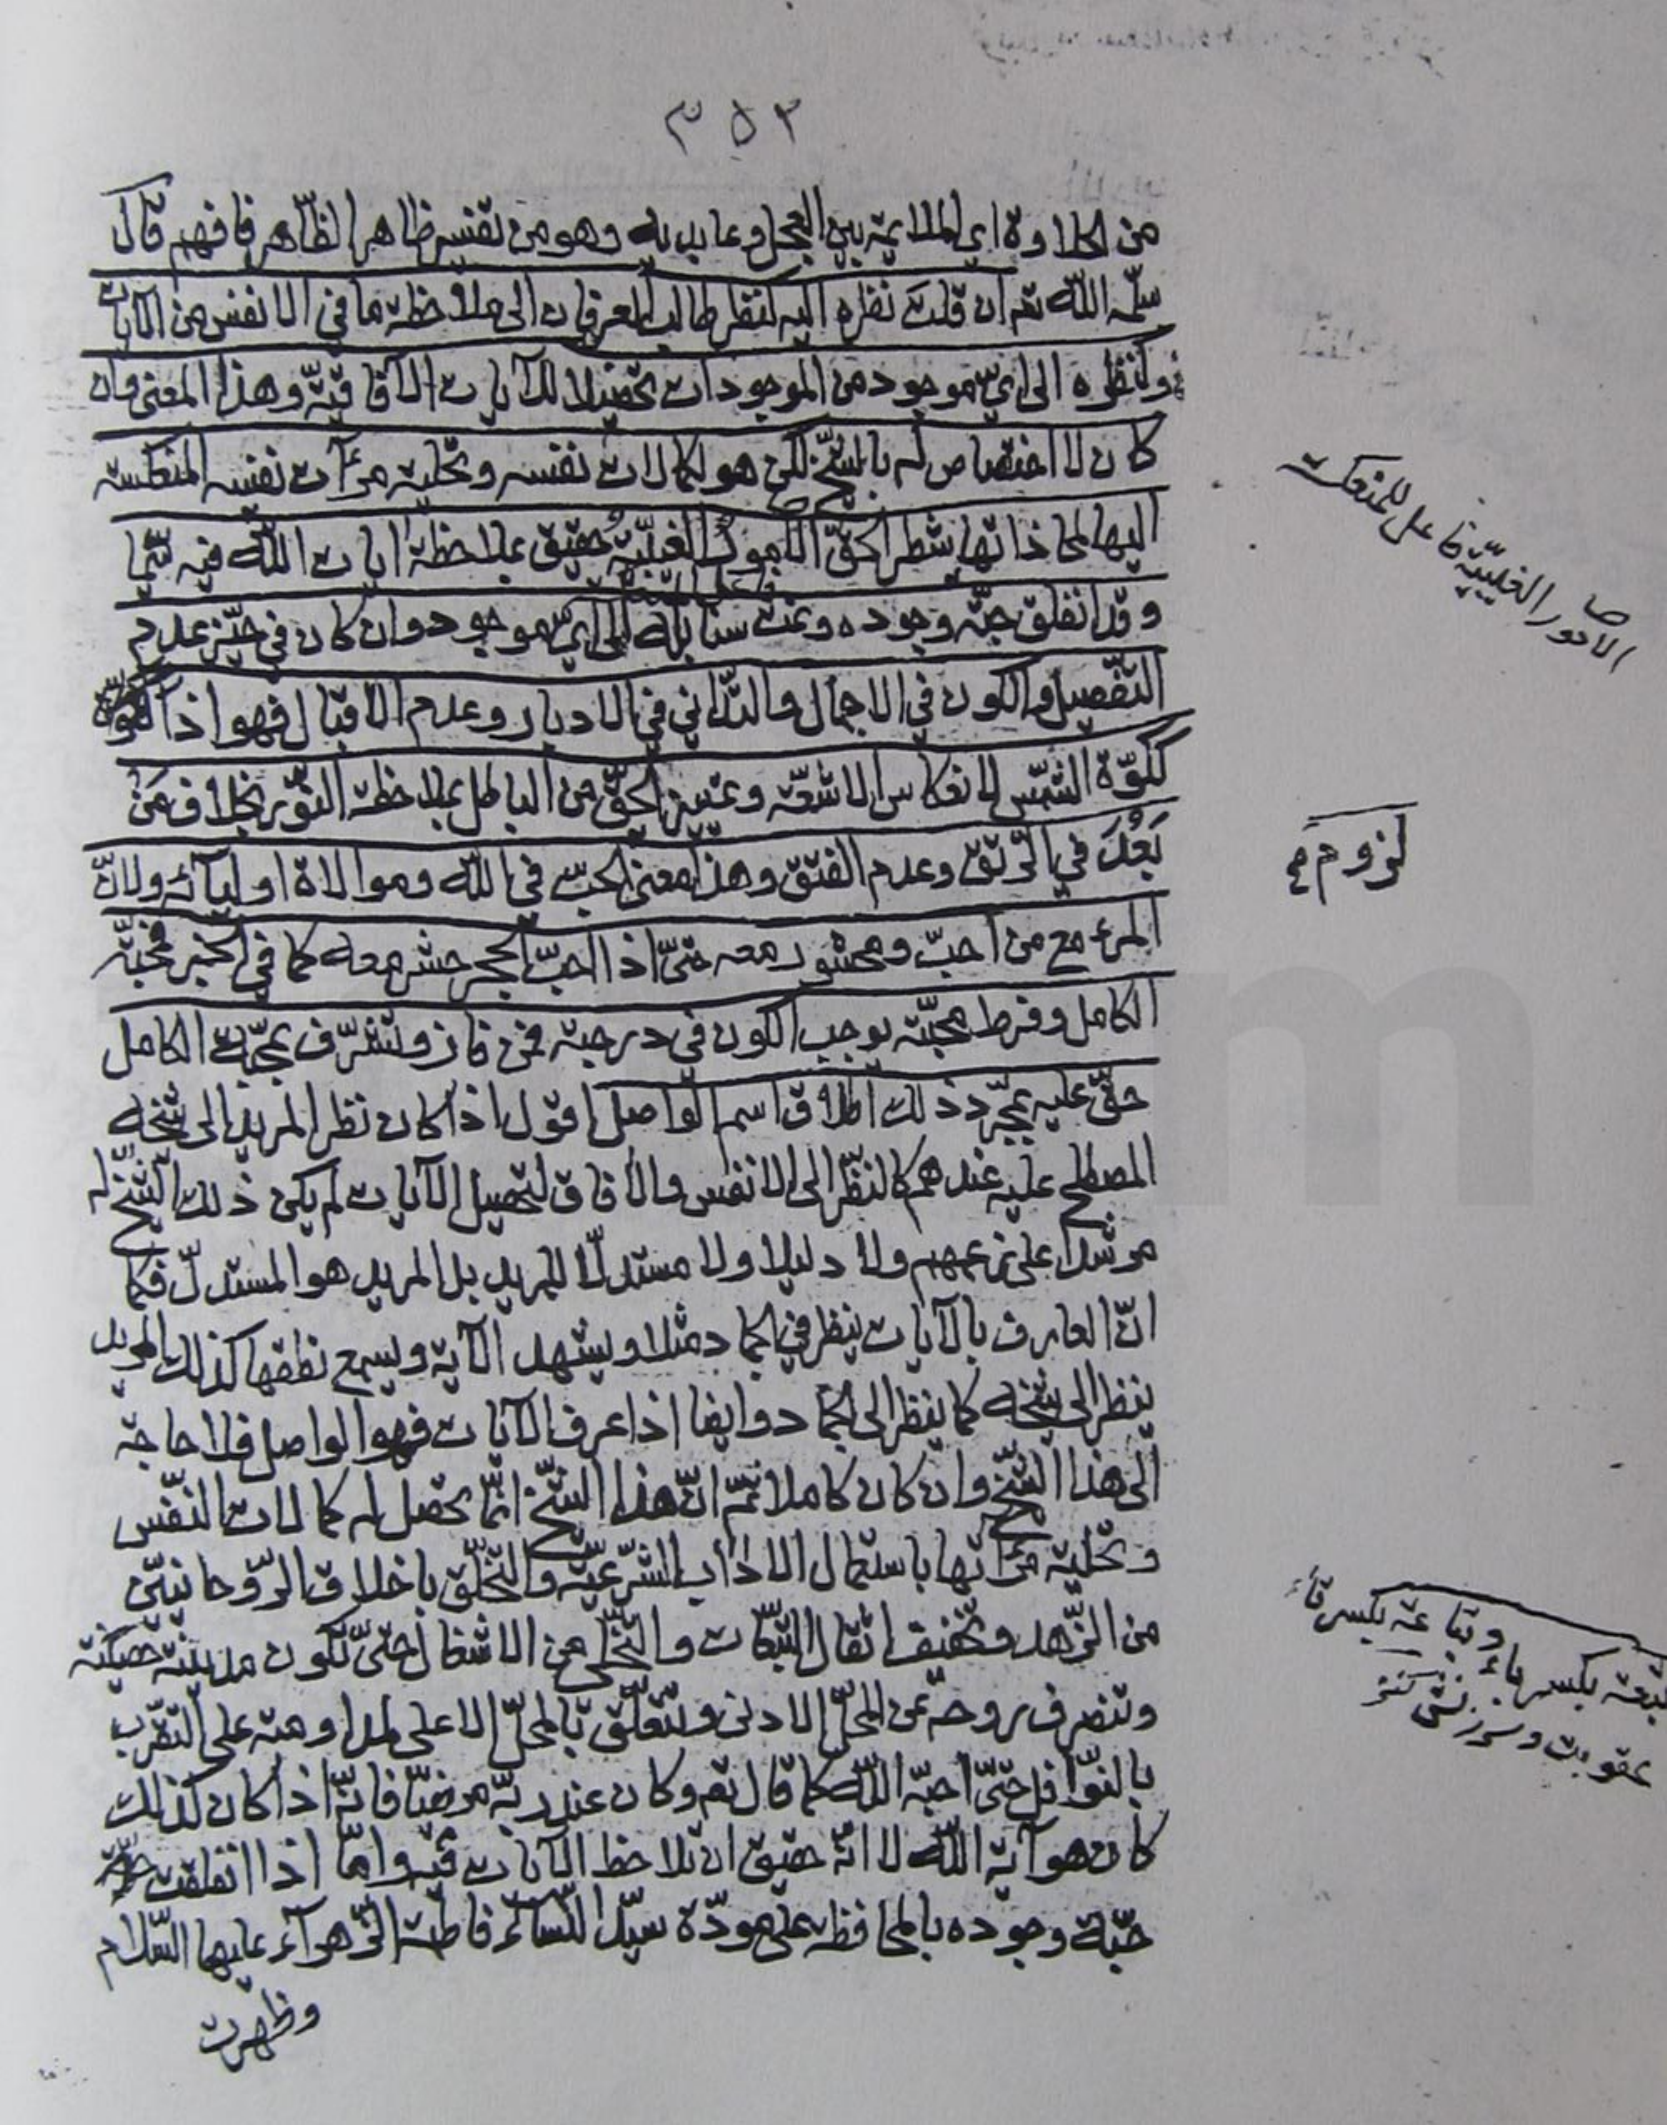 ٣٥٢
من الحلاوة اي الملايمة بين العجل وعابديه وهو من تفسير ظاهر الظّاهر فافهم قال
سلّمه اللّه تعـ ان قلت نظره اليه كنظر طالب العرفان الى ملاحظة ما في الانفس من الآيات
وكنظره الى ايّ موجود من الموجودات تحصيلا للآيات الآفاقيّة وهذا المعنى وان
كان لا اختصاص له بالشّيخ لكن هو لكمالات نفسه وتخلية مرآت نفسه المنعكسة
اليها لمحاذاتها شطر الحقّ الامور الغيبيّة حقيق بملاحظة ايات اللّه فيه سيّما
وقد انفلق حبّة وجوده ونمت سنابله الى ايّ موجود وان كان في حيّز عدم
التّفصيل والكون في الاجمال والتّداني في الادبار وعدم الاقبال فهو اذاً
ككوّة الشّمس لانعكاس الاشعّة وتمييز الحقّ من الباطل بملاحظة النّور بخلاف من
بَعُدَ في الرّتق وعدم الفتق وهذا معنى الحبّ في اللّه وموالاة اوليآئه ولانّ
المرء مع من احبّ ومحشور معه حتّى اذا احبّ الحجر حشر معه كما في الخبر فمحبّة
الكامل وفرط محبّته يوجب الكون في درجته فمن فاز وتشرّف بمحبّة الكامل
حقّ عليه بمجرّد ذلك اطلاق اسم الواصل اقول اذا كان نظر المريد الى شيخه
المصطلح عليه عندهم كالنّظر الى الانفس والآفاق لتحصيل الآيات لم يكن ذلك الشّيخ له
مرشدا على زعمهم ولا دليلا ولا مستدلّا للمريد بل المريد هو المستدلّ فكما
انّ العارف بالآيات ينظر في الجماد مثلا ويشهد الآية ويسمع نطقها كذلك المريد
ينظر الى شيخه كما ينظر الى الجماد وايضا اذا عرف الآيات فهو الواصل فلا حاجة
الى هذا الشّيخ وان كان كاملا ثمّ انّ هذا الشّيخ انّما تحصل له كمالات النّفس
وتخلية مرآتها باستعمال الاداب الشّرعيّة والتّخلّق باخلاق الرّوحانيّين
من الزّهد وتخفيف اثقال التّبعات والتّخلّي من الاشغال حتّى تكون مدينته حصينة
وتنصرف روحه عن المحلّ الادنى وتتعلّق بالمحلّ الاعلى لمداومته على التّقرّب
بالنّوافل حتّى احبّه اللّه كما قال تعـ وكان عند ربّه مرضيّا فانّه اذا كان كذلك
كان هو آية اللّه لا انّه حقيق ان تلاحظ الآيات فيه وامّا اذا انفلقت
حبّة وجوده بالمحافظة على مودّة سيّدة النّسآء فاطمة الزّهرآء عليها السّلام
وظهرت
الامور الغيبيّة فاعل للمنعكسة
لزوم
تبعة بكسر باء وتباعة بكسر تاء
عقوبت وسرزنش كنز